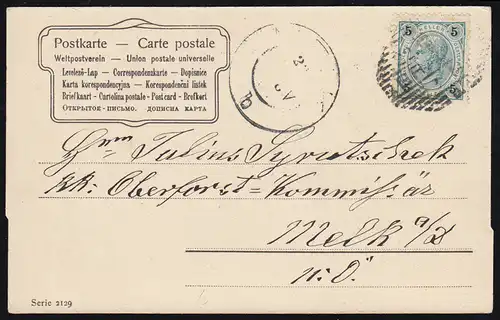 Postkarte — Carte postale
Weltpostverein — Union postale universelle
Levelező-Lap — Correspondenzkarte — Dopisnice
Karta korespondencyjna — Korespondenční lístek
Briefkaart - Cartolina postale - Post card - Brefkort
Открытое-письмо. дописна карта
5 5
Julius
kk: Oberforst=Kommissär
Melk a/D
N. Ö.
Serie 2129